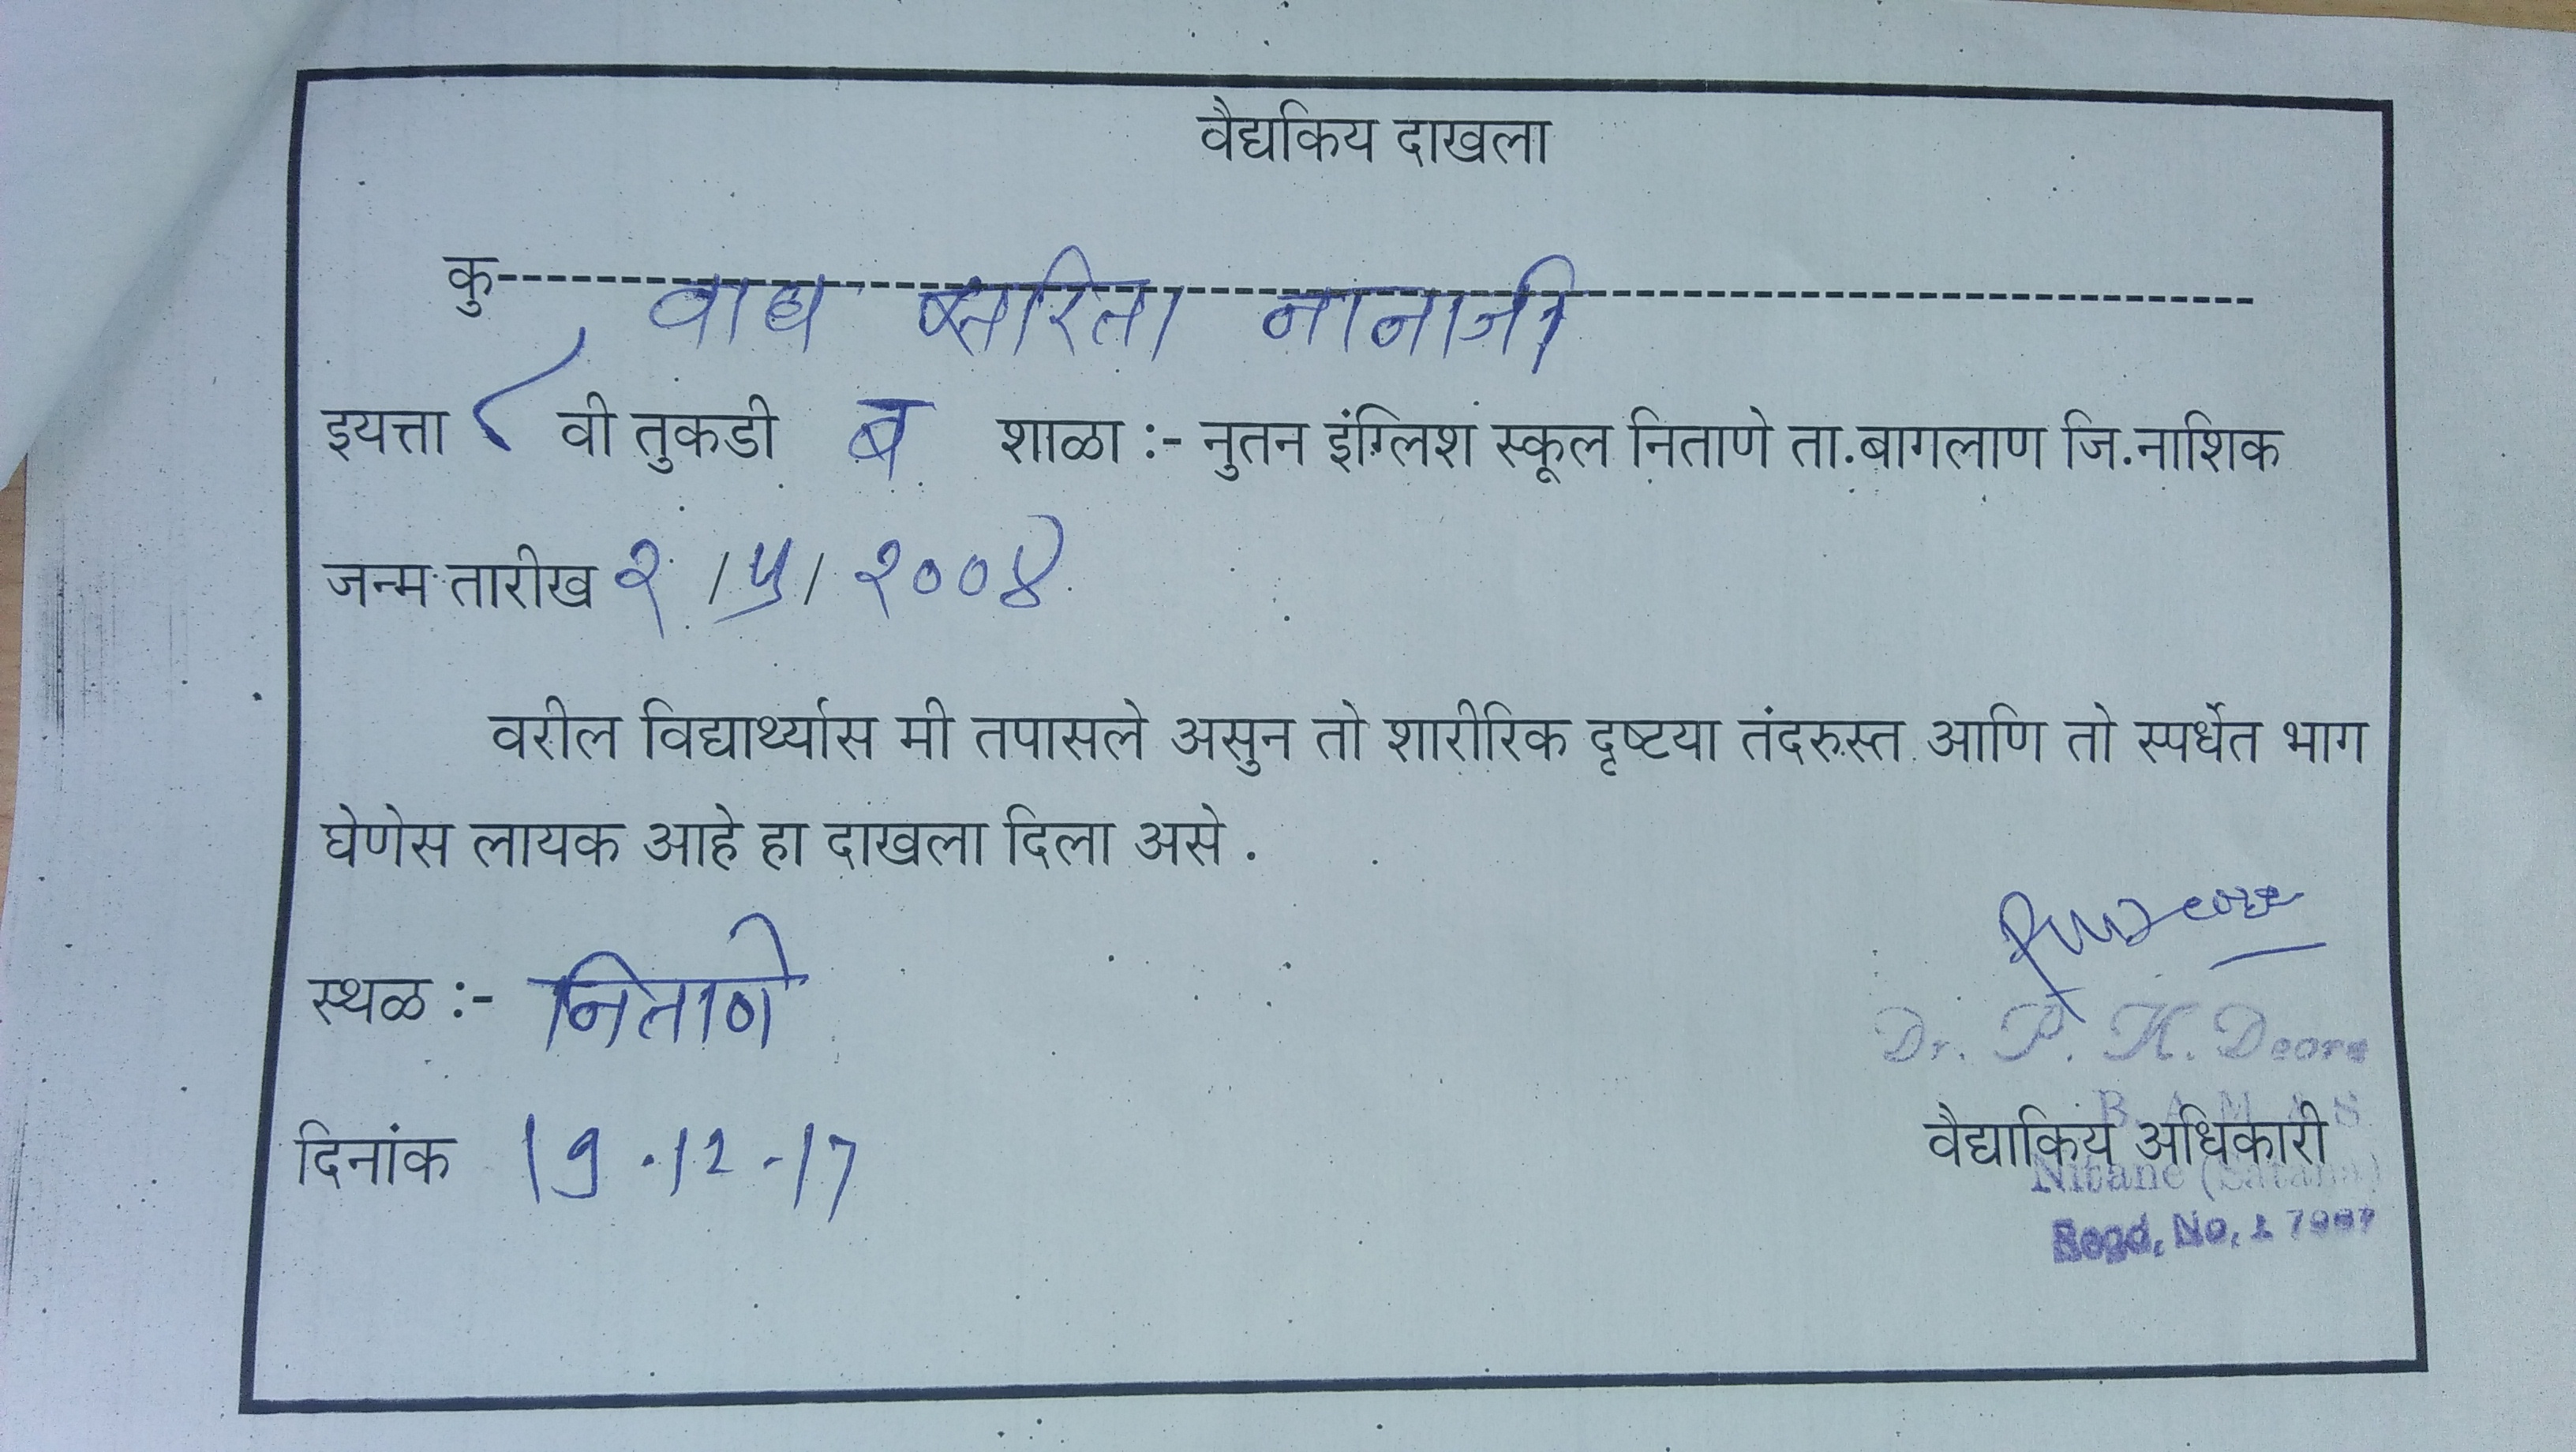 वैद्यकिय दाखला
कु वाघ सरिता नानाजी
इयत्ता ८ वी तुकडी ब शाळा :- नुतन इंग्लिश स्कूल निताणे ता.बागलाण जि.नाशिक
जन्म तारीख २ /५/ २००४
वरील विद्यार्थ्यास मी तपासले असुन तो शारीरिक दृष्टया तंदरुस्त आणि तो स्पर्धेत भाग
घेणेस लायक आहे हा दाखला दिला असे .
स्थळ :- निताणे
Dr. P. K. Deore
B. A. M. S
दिनांक 19-12-17 वैद्याकिय अधिकारी
Nitane (Satana)
Regd. No.